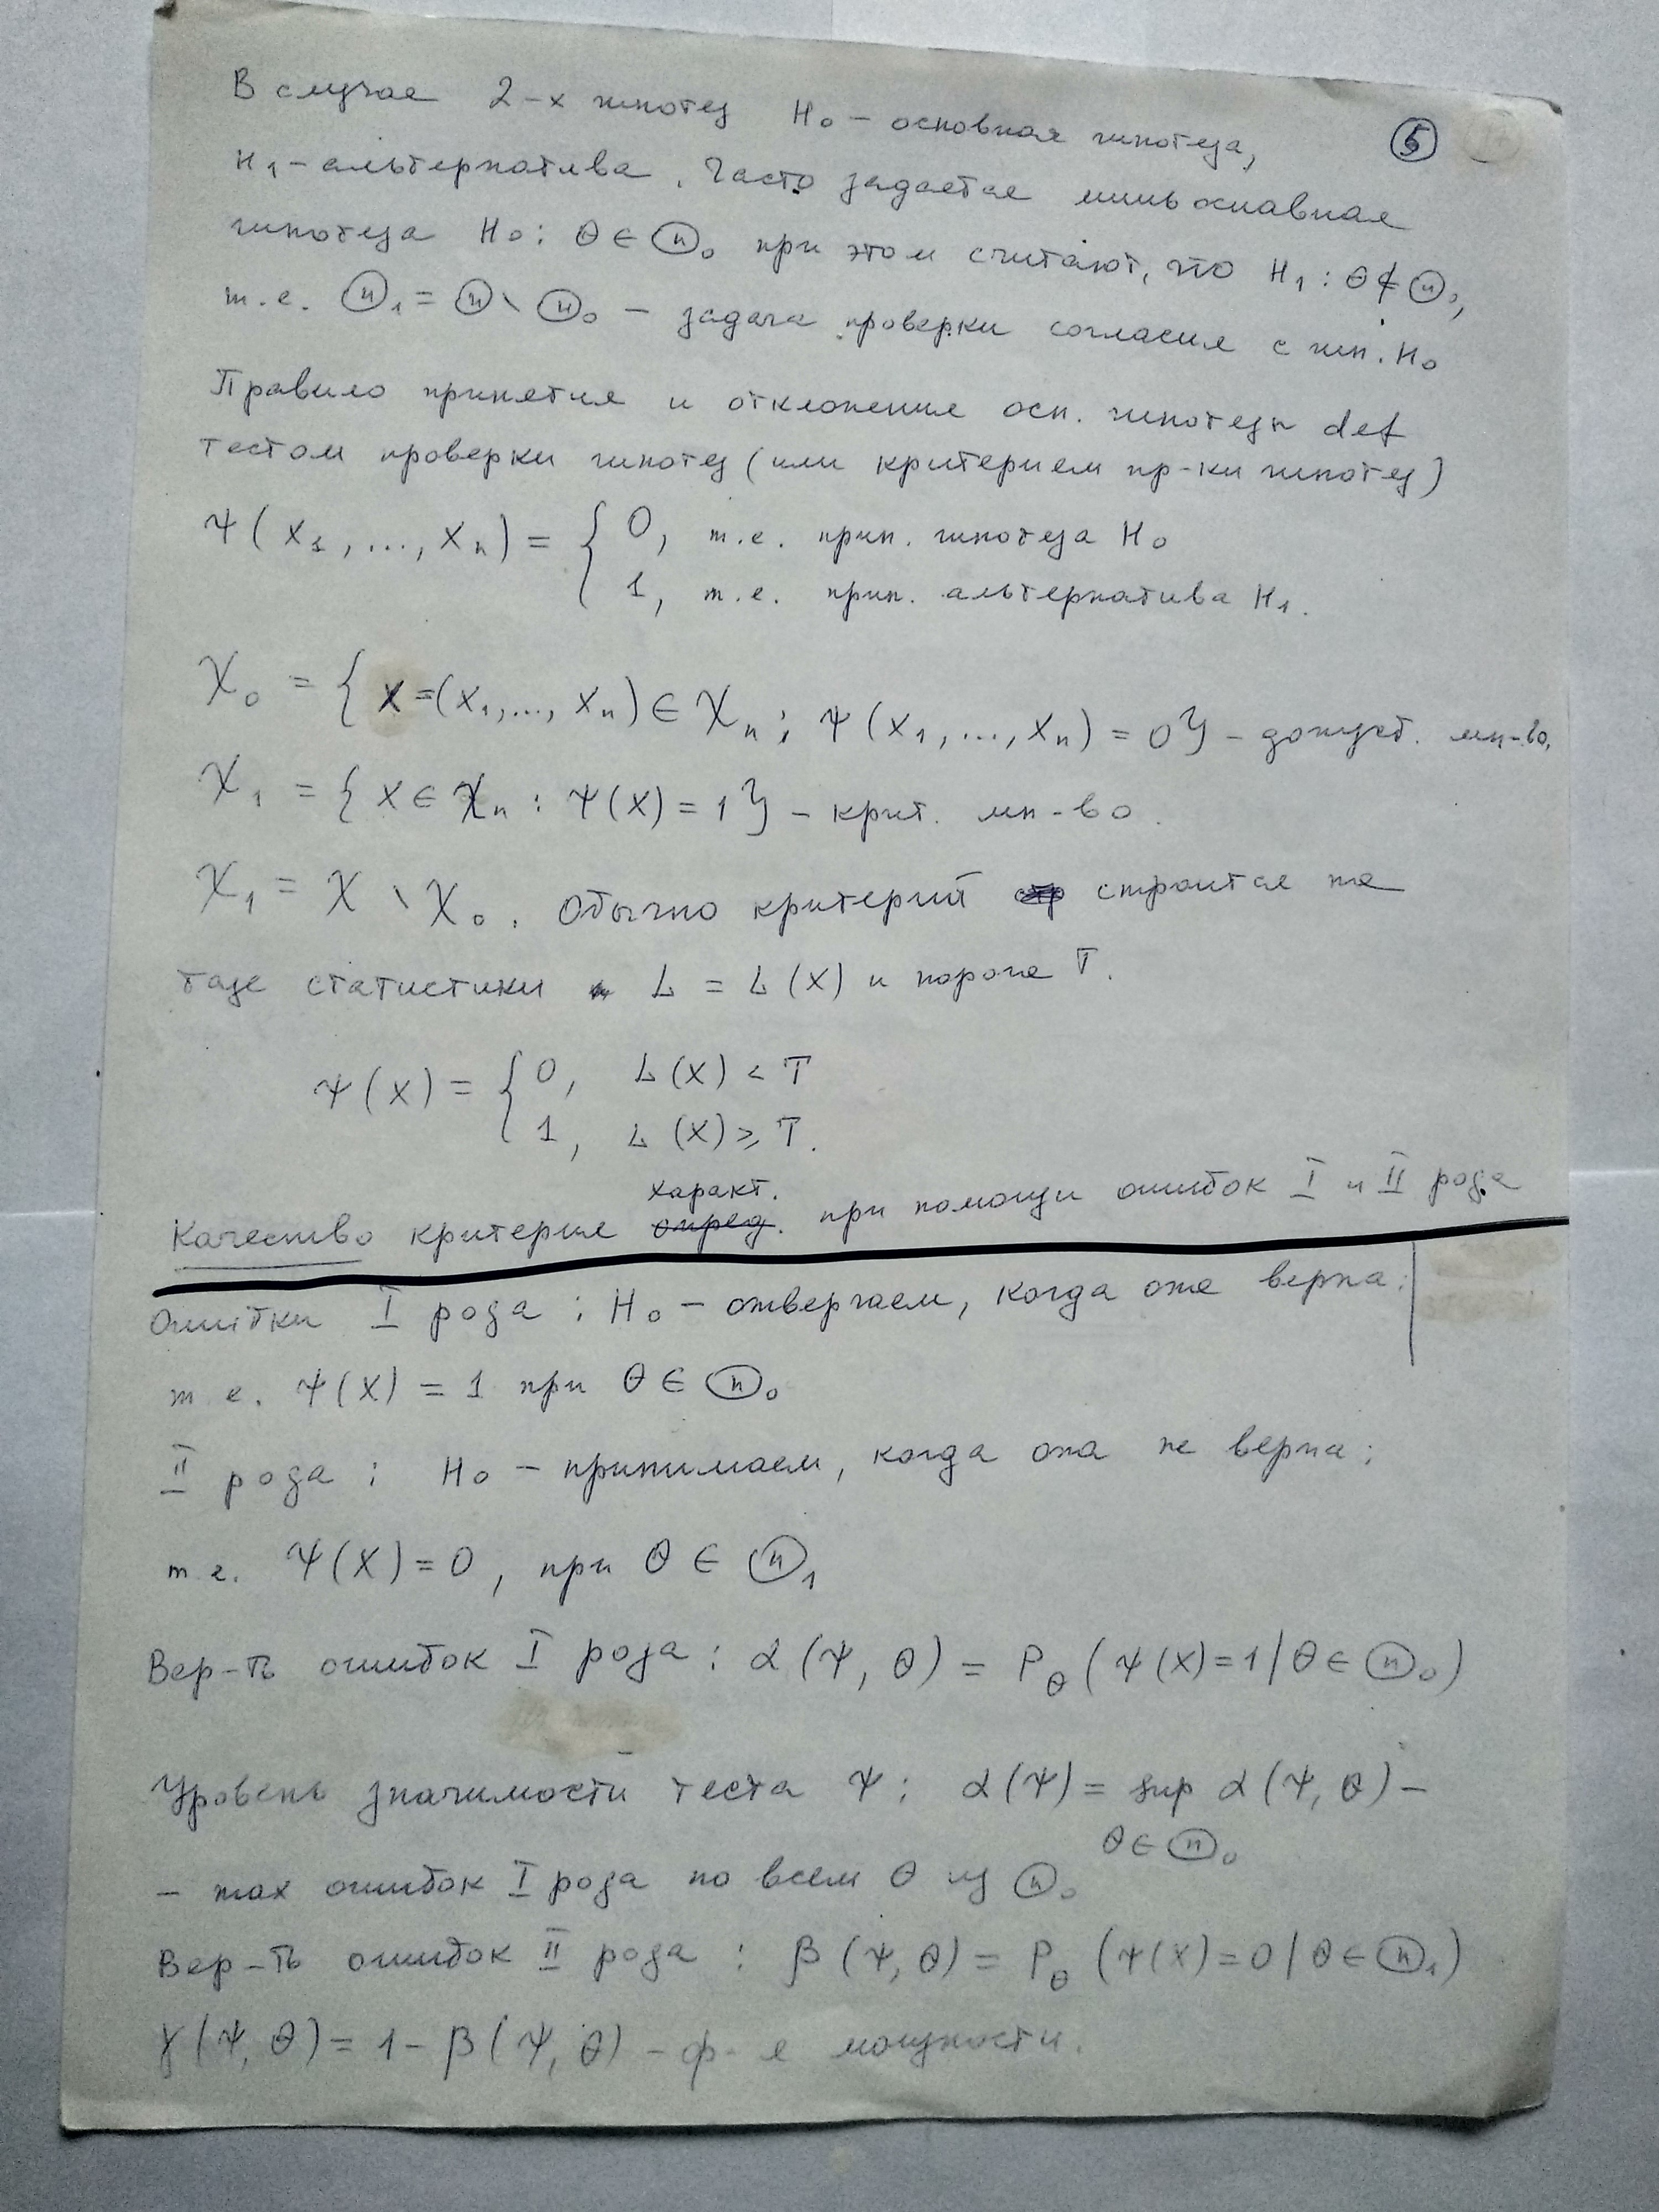 В случае 2-х гипотез H₀ – основная гипотеза, ⑤
H₁ – альтернатива. Часто задается лишь основная
гипотеза H₀: θ ∈ Θ₀ при этом считают, что H₁: θ ∉ Θ₀,
т.е. Θ₁ = Θ \ Θ₀ – задача проверки согласия с гип. H₀
Правило принятия и отклонения осн. гипотезы def
тестом проверки гипотез (или критерием пр-ки гипотез)
Ψ(x₁, ..., xₙ) = { 0, т.е. прин. гипотеза H₀
1, т.е. прин. альтернатива H₁.
χ₀ = { x = (x₁, ..., xₙ) ∈ χₙ : Ψ(x₁, ..., xₙ) = 0} – допуст. мн-во,
χ₁ = { x ∈ χₙ : Ψ(x) = 1} – крит. мн-во.
χ₁ = χ \ χ₀. Обычно критерий строится на
базе статистики L = L(x) и порога T.
Ψ(x) = { 0, L(x) < T
1, L(x) ≥ T.
характ.
Качество критерия опред. при помощи ошибок I и II рода
Ошибки I рода : H₀ – отвергаем, когда она верна:
т.е. Ψ(x) = 1 при θ ∈ Θ₀
II рода : H₀ – принимаем, когда она не верна;
т.е. Ψ(x) = 0, при θ ∈ Θ₁
Вер-ть ошибок I рода : α(Ψ, θ) = P_θ (Ψ(x) = 1 / θ ∈ Θ₀)
Уровень значимости теста Ψ : α(Ψ) = sup α(Ψ, θ) –
θ ∈ Θ₀
– max ошибок I рода по всем θ из Θ₀
Вер-ть ошибок II рода : β(Ψ, θ) = P_θ (Ψ(x) = 0 / θ ∈ Θ₁)
γ(Ψ, θ) = 1 – β(Ψ, θ) – ф-я мощности.